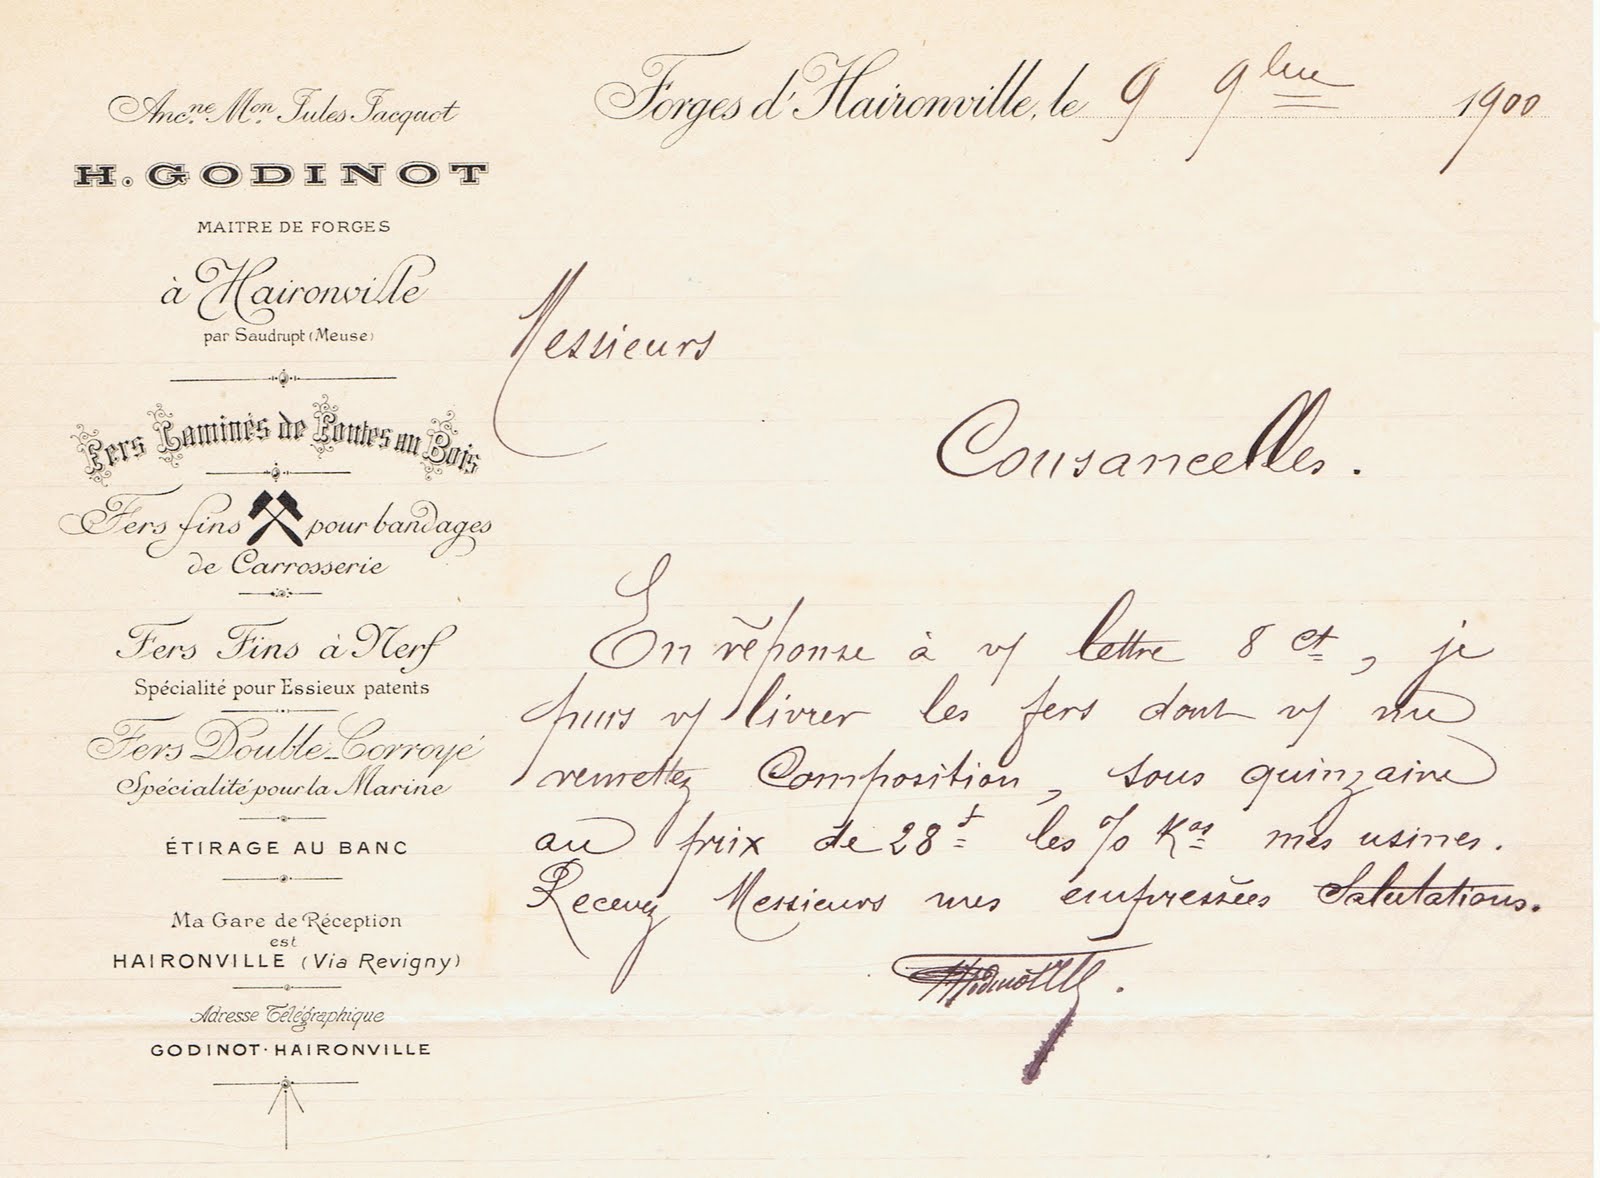 Anc.ne M.on Jules Jacquot
H. GODINOT
MAITRE DE FORGES
à Haironville
par Saudrupt (Meuse)
Fers Laminés de Fontes au Bois
Fers fins pour bandages
de Carrosserie
Fers Fins à Nerf
Spécialité pour Essieux patents
Fers Double-Corroyé
Spécialité pour la Marine
ÉTIRAGE AU BANC
Ma Gare de Réception
est
HAIRONVILLE (Via Revigny)
Adresse Télégraphique
GODINOT-HAIRONVILLE
Forges d'Haironville, le 9 9bre 1900
Messieurs
Cousancelles.
En réponse à v/ lettre 8 ct, je
puis v/ livrer les fers dont v/ me
remettez Composition, sous quinzaine
au prix de 28f les % Kos mes usines.
Recevez Messieurs mes empressées Salutations.
HGodinot